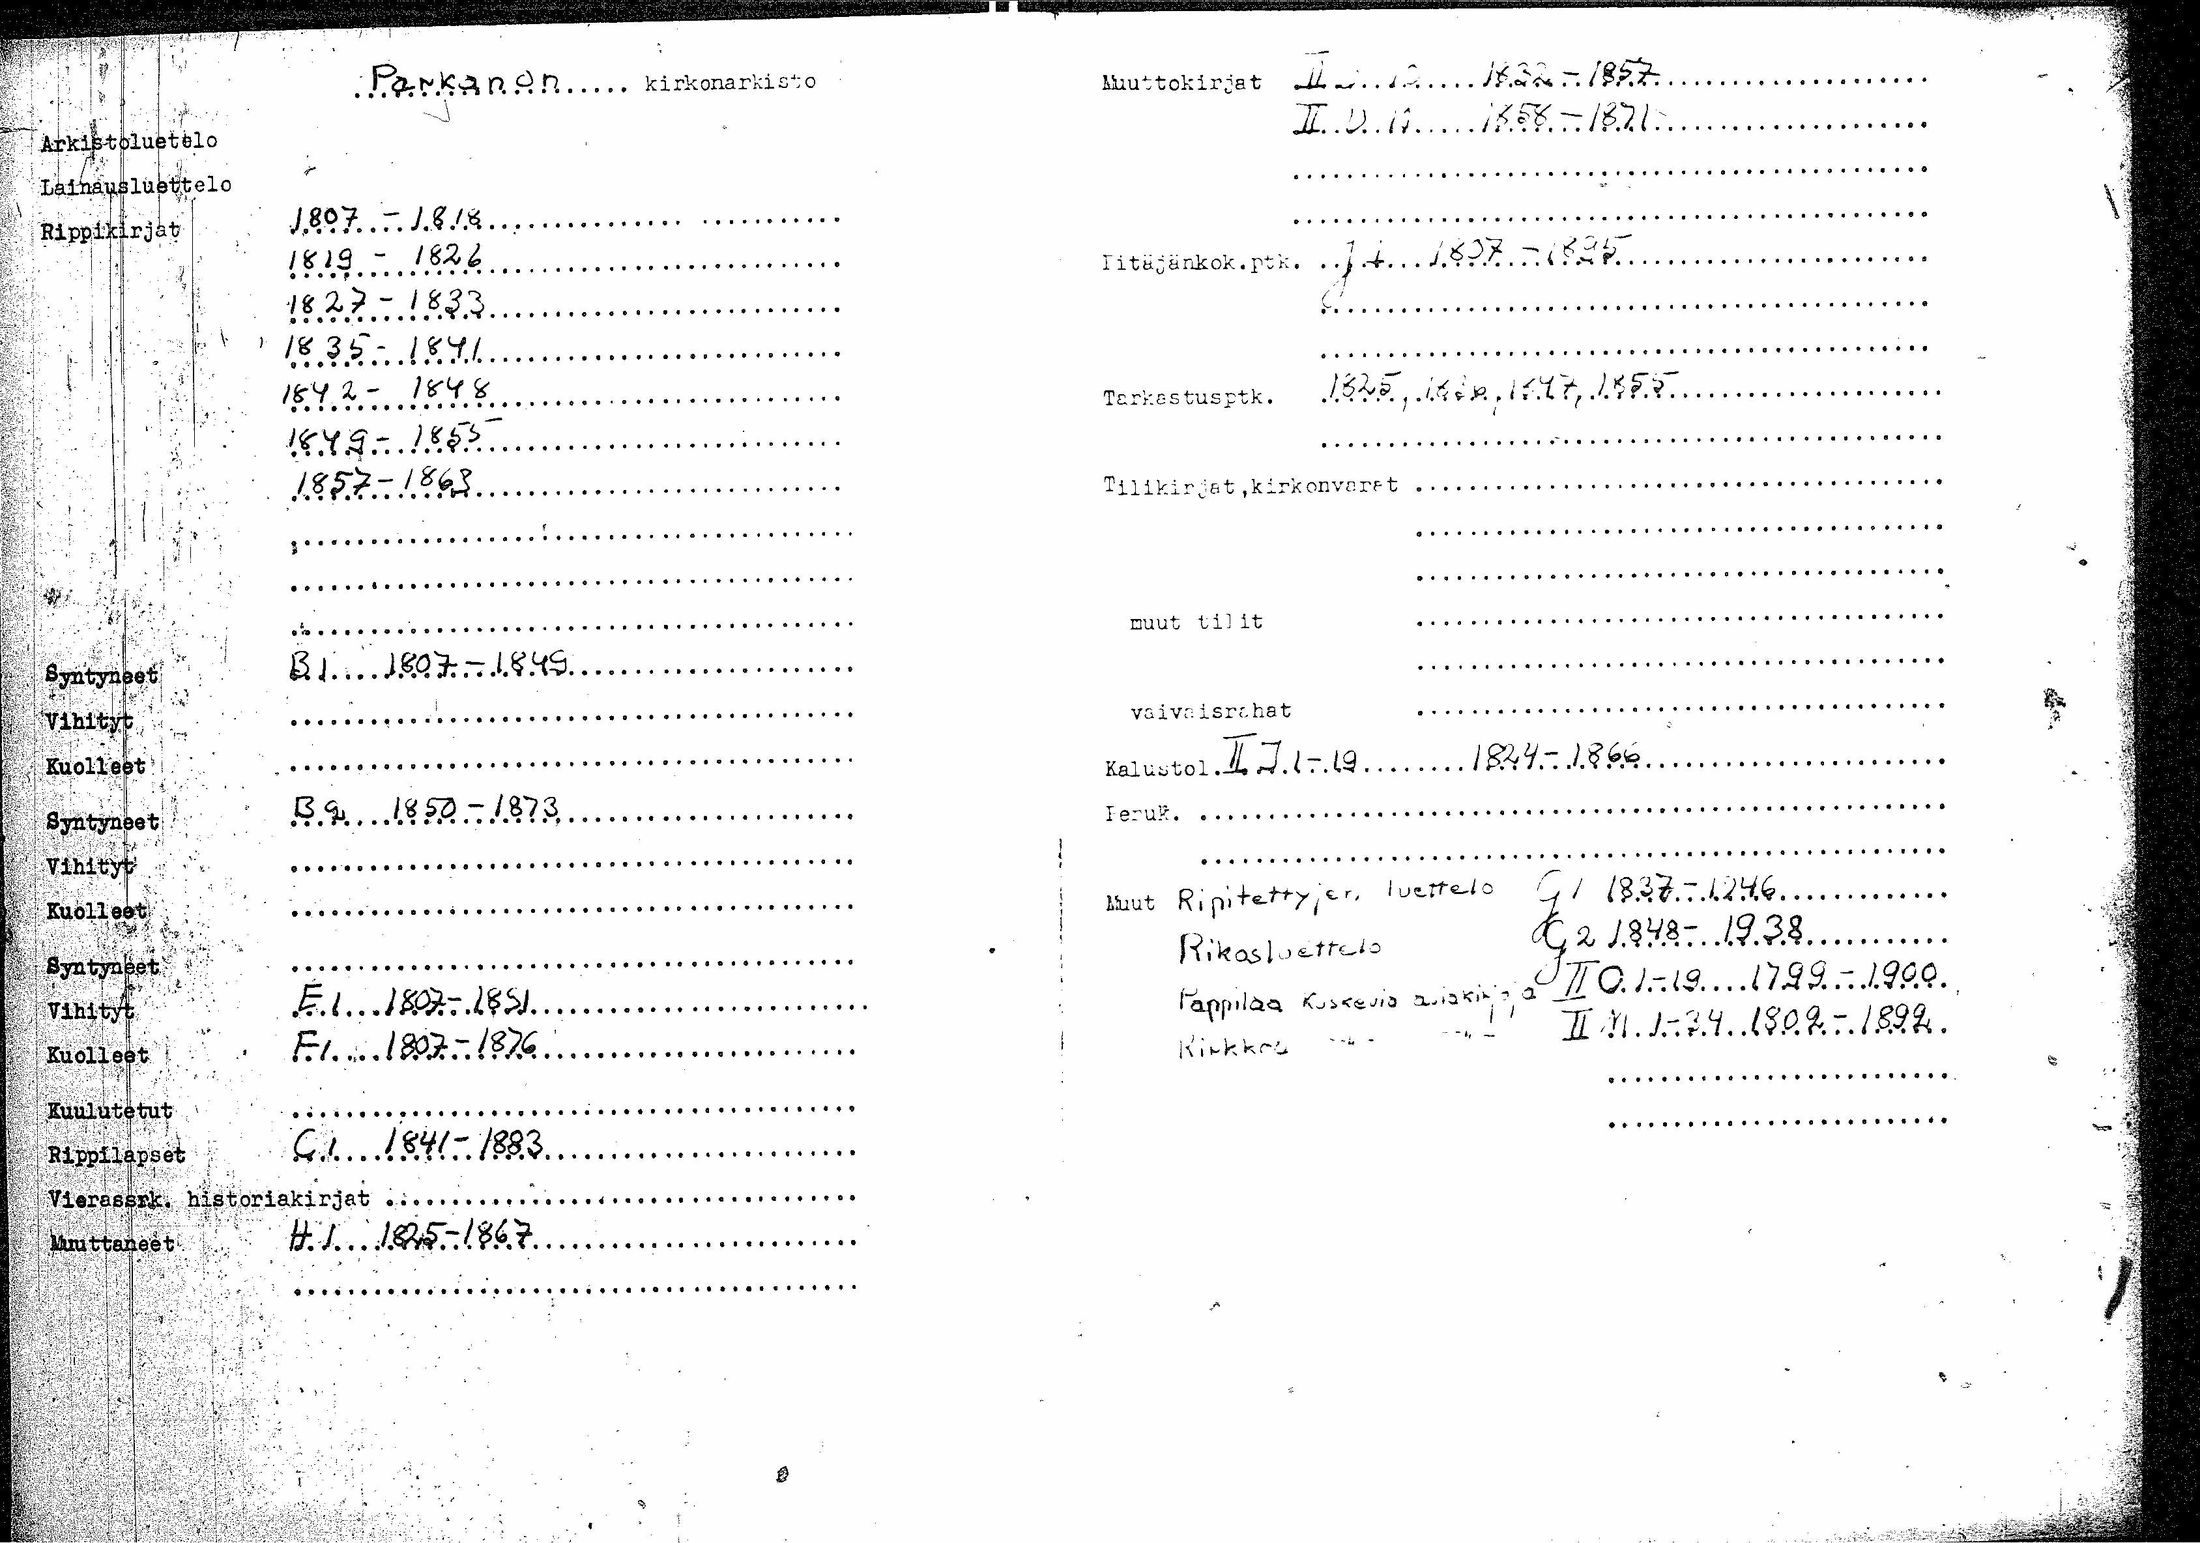 Parkanon kirkonarkisto
Arkistoluettelo
Lainausluettelo
Rippikirjat 1807 - 1818
1819 - 1826
1827 - 1833
1835 - 1841
1842 - 1848
1849 - 1855
1857 - 1863
Syntyneet B 1 1807 - 1849
Vihityt
Kuolleet
Syntyneet B 2 1850 - 1873
Vihityt
Kuolleet
Syntyneet
Vihityt E 1 1807 - 1851
Kuolleet F 1 1807 - 1876
Kuulutetut
Rippilapset C 1 1841 - 1883
Vierassrk. historiakirjat
Muuttaneet H 1 1825 - 1867
Muuttokirjat II - 1857
II 1858 - 1871
Pitäjänkok.ptk. 1837 - 1895
Tarkastusptk. 1825, 1847, 1855
Tilikirjat,kirkonvarat
muut tilit
vaivaisrahat
Kalustol. II J.1 - 19 1824 - 1866
Peruk.
Muut Ripitettyjen luettelo G 1 1837 - 1246
Rikosluettelo G 2 1848 - 1938
Pappilaa koskevia asiakirjoja II O.1 - 19 1799 - 1900
Kirkkoa -"- -"- II 1 - 34 1802 - 1892